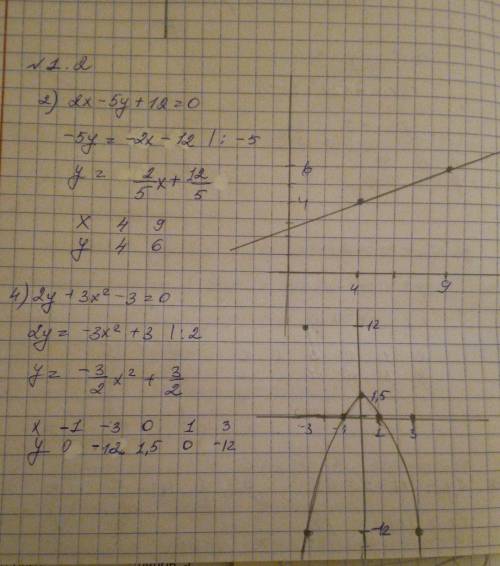 №1.2
2) 2x-5y+12=0
-5y = -2x-12 | : -5
y = 2/5 x + 12/5
x 4 9
y 4 6
6
4
4 9
4) 2y+3x²-3=0
2y = -3x²+3 | :2
y = -3/2 x² + 3/2
x -1 -3 0 1 3
y 0 -12 1,5 0 -12
-12
1,5
-3 -1 1 3
-12